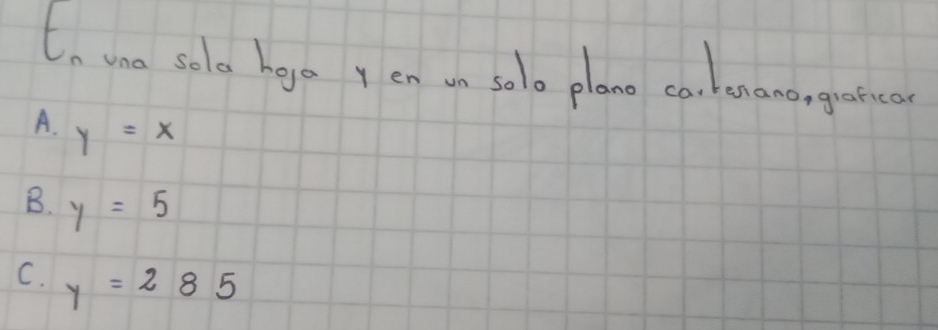 En una sola hoja y en un solo plano cartesiano, graficar
A. y = x
B. y = 5
C. y = 2 8 5